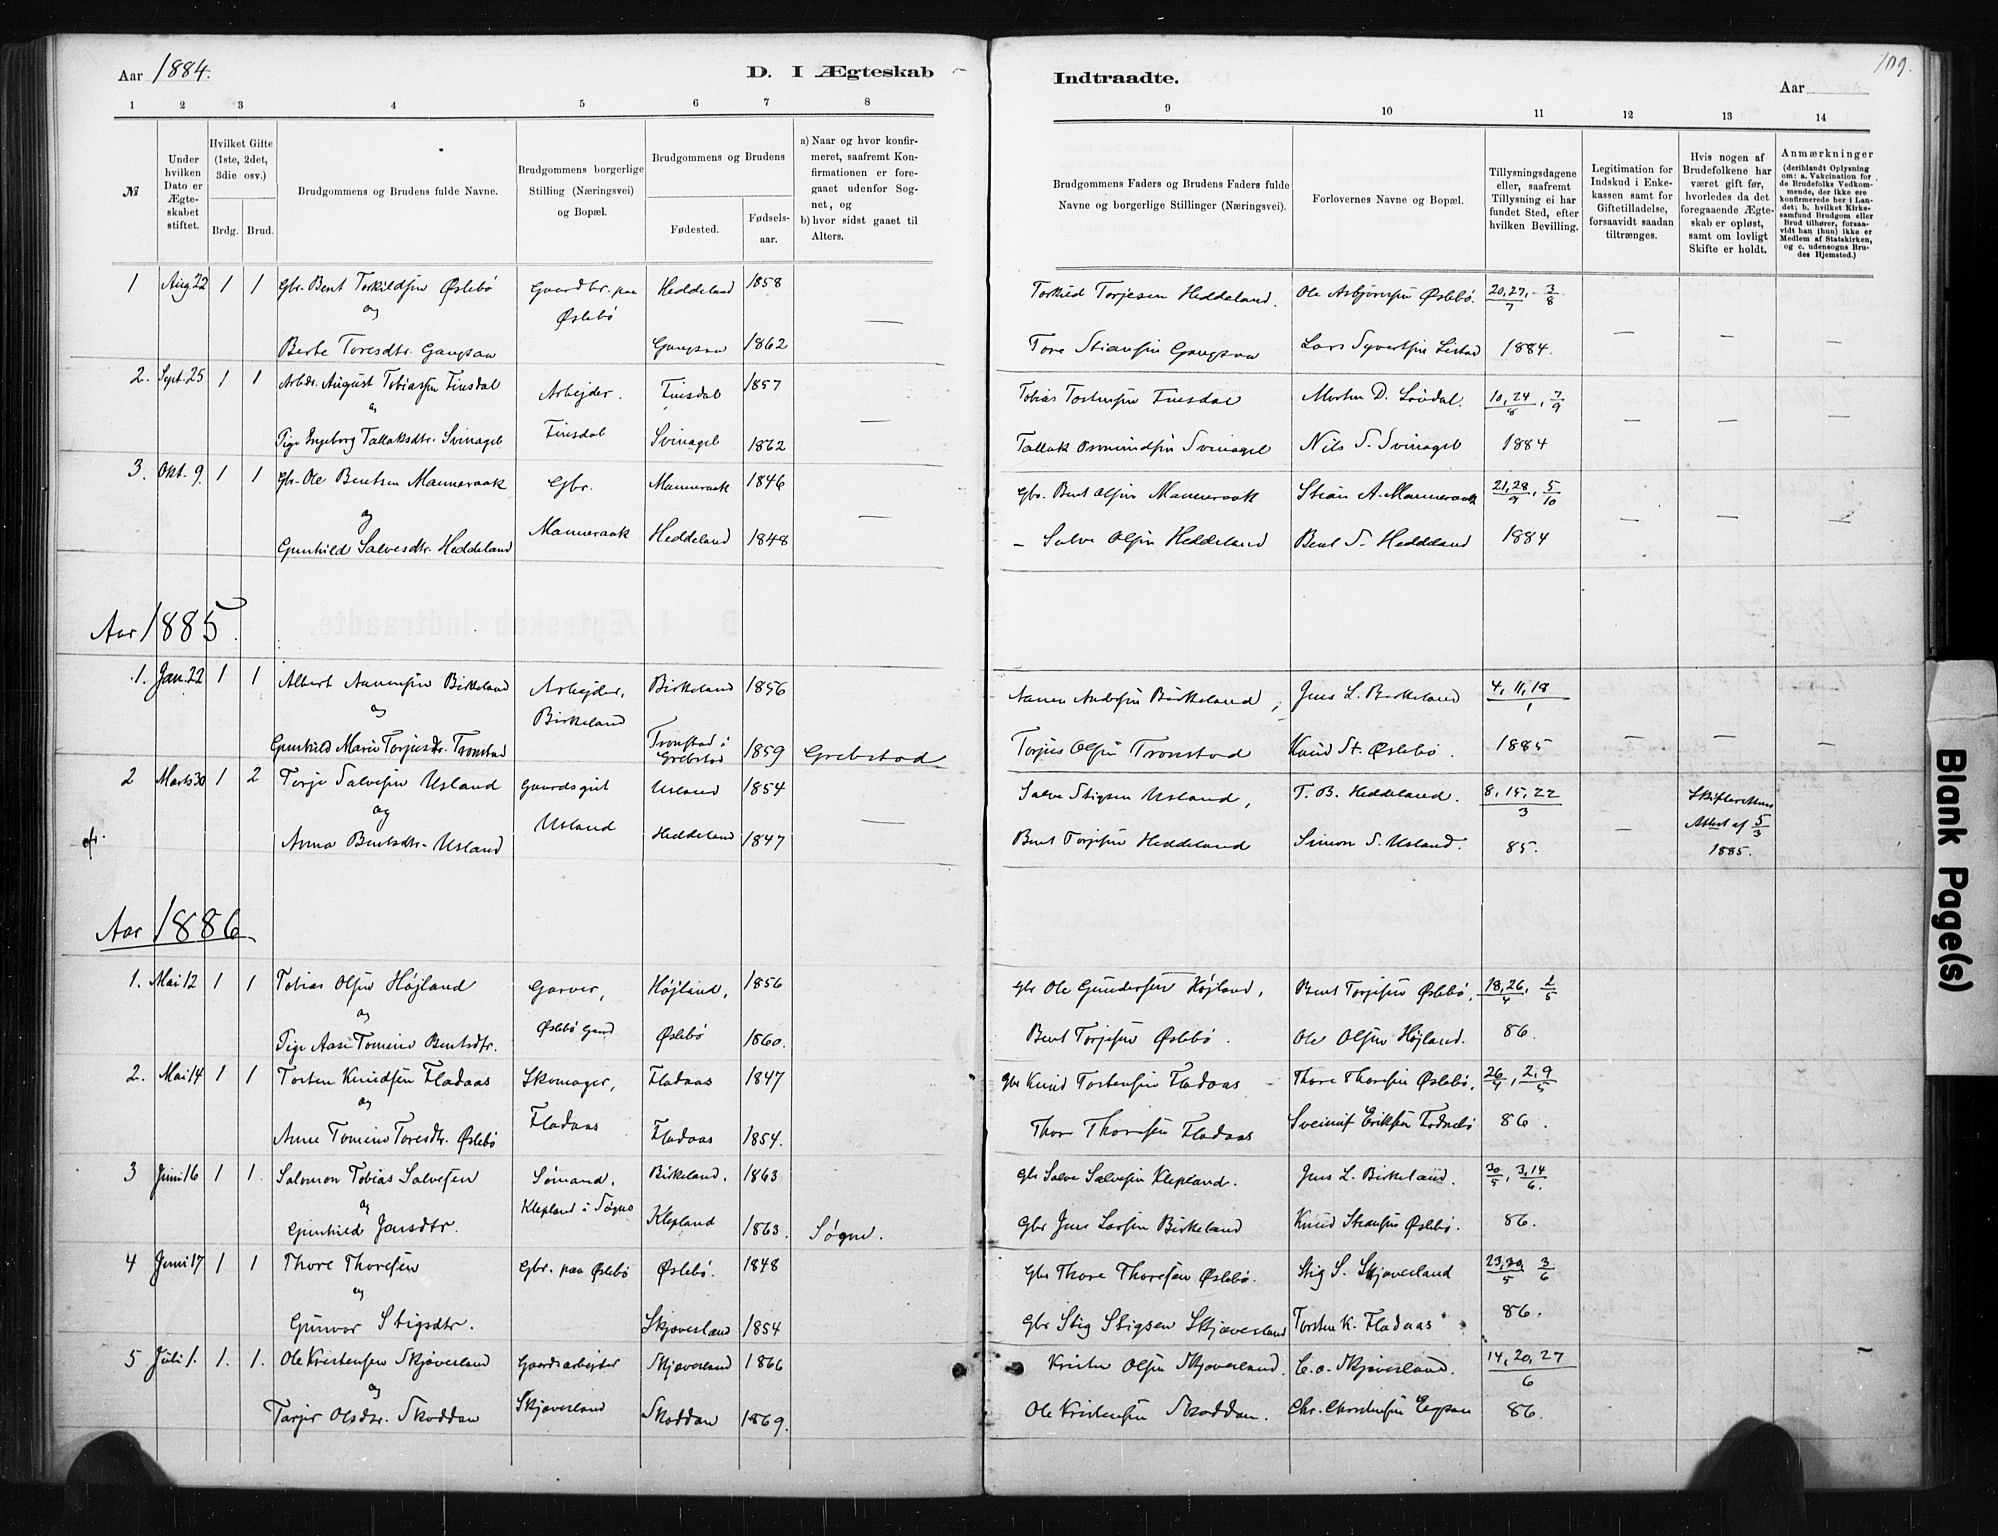 Aar 1884.
D. I Ægteskab
Indtraadte.
Aar
109.
1 2 3 4 5 6 7 8 9 10 11 12 13 14
№
Under hvilken Dato er Ægteskabet stiftet.
Hvilket Gifte (1ste, 2det, 3die osv.)
Brdg. Brud.
Brudgommens og Brudens fulde Navne.
Brudgommens borgerlige Stilling (Næringsvei) og Bopæl.
Brudgommens og Brudens
Fødested.
Fødselsaar.
a) Naar og hvor konfirmeret, saafremt Konfirmationen er foregaaet udenfor Sognet, og
b) hvor sidst gaaet til Alters.
Brudgommens Faders og Brudens Faders fulde Navne og borgerlige Stillinger (Næringsvei).
Forlovernes Navne og Bopæl.
Tillysningsdagene eller, saafremt Tillysning ei har fundet Sted, efter hvilken Bevilling.
Legitimation for Indskud i Enkekassen samt for Giftetilladelse, forsaavidt saadan tiltrænges.
Hvis nogen af Brudefolkene har været gift før, hvorledes da det foregaaende Ægteskab er opløst, samt om lovligt Skifte er holdt.
Anmærkninger
(deriblandt Oplysning om: a. Vakcination for de Brudefolks Vedkommende, der ikke ere konfirmerede her i Landet; b. hvilket Kirkesamfund Brudgom eller Brud tilhører, forsaavidt han (hun) ikke er Medlem af Statskirken, og c. udensogns Brudes Hjemsted.)
1 Aug 22 1 1 Gbr. Bent Torkildsen Øslebö Gaardbr. paa Øslebö Heddeland 1858 — Torkild Torjesen Heddeland. Ole Asbjörnsen Øslebö. 20, 27/7 - 3/8
og
Berte Toresdtr. Gangsaa Gangsaa 1862 Tore Stiansen Gangsaa Lars Syvertsen 1884. — — —
2. Sept. 25 1 1 Arbdr. August Tobiassen Finsdal Arbejder. Finsdal 1857 Tobias Tostensen Finsdal Morten D. 10, 24/8, 7/9
og
Pige Ingeborg Tallaksdtr. Svinagel Finsdal Svinagel 1862 Tallak Osmundsen Svinagel Nils T. Svinagel 1884 — — —
3. Okt. 9 1 1 Gbr. Ole Bentsen Manneraak Gbr. Manneraak 1846 Gbr. Bent Olsen Manneraak Stian A. Manneraak 21, 28/9, 5/10
og
Gunhild Salvesdtr. Heddeland Manneraak Heddeland 1848 — – Salve Olsen Heddeland Bent S. Heddeland 1884 — — —
Aar 1885.
1. Jan. 22 1 1 Albert Aanensen Birkeland Arbejder, Birkeland 1856 Aanen Andersen Birkeland, Jens L. Birkeland 4, 11, 18/1
og Birkeland
Gunhild Marie Torjusdtr. Tronstad Tronstad i Grebstad 1859 Grebstad Torjus Olsen Tronstad Knud St. Øslebö. 1885 — — —
2 Marts 30 1 2 Torje Salvesen Usland Gaardsgut Usland 1854 Salve Stigsen Usland, T. B. Heddeland. 8, 15, 22/3 Skifterettens
og
Anna Bentsdtr. Usland Usland Heddeland 1847 — Bent Torjesen Heddeland Simon S. Usland. 85. — Attest af 5/3 1885.
Aar 1886.
1. Mai 12 1 1 Tobias Olsen Højland Garver, Højland, 1856 Gbr Ole Gundersen Højland, Bent Torjesen Øslebö, 18, 26/4, 2/5
og
Pige Aase Tomine Bentsdtr. Øslebö Øslebö 1860. Bent Torjesen Øslebö. Ole Olsen Højland. 86.
2. Mai 14 1 1 Torsten Knudsen Fladaas Skomager, Fladaas 1847 Gbr Knud Torstensen Fladaas Thore Thoresen Øslebö, 26/4, 2, 9/5
og
Anne Tomine Toresdtr. Øslebö Fladaas Fladaas 1854. Thore Thoresen Fladaas Eriksen 86.
3 Juni 16 1 1. Salomon Tobias Salvesen Sömand, Birkeland, 1863 Gbr Salve Salvesen Klepland. Jens L. Birkeland. 30/5, 3, 14/6.
og Klepland i Søgne
Gunhild Jensdtr. Klepland 1863. Søgne. Gbr Jens Larsen Birkeland Knud Stiansen Øslebö. 86.
4 Juni 17 1 1 Thore Thoresen Gbr. paa Øslebö Øslebö. 1848 Gbr Thore Thoresen Øslebö. Stig S. Skjæversland 23, 30/5 3/6
og
Gunvor Stigsdtr. Skjæversland 1854 Gbr Stig Stigsen Skjæversland Torsten K. Fladaas 86.
5 Juli 1. 1. 1. Ole Kristensen Skjæversland Gaardsarbejder Skjæversland 1866 Kristen Olsen Skjæversland. C. O. Skjæversland. 14, 20, 27/6
og
Tarjer Olsdtr. Skoddan Skjæversland Skoddan 1869. Ole Kristensen Skoddan. Chr. Christensen 86.
Blank Page(s)